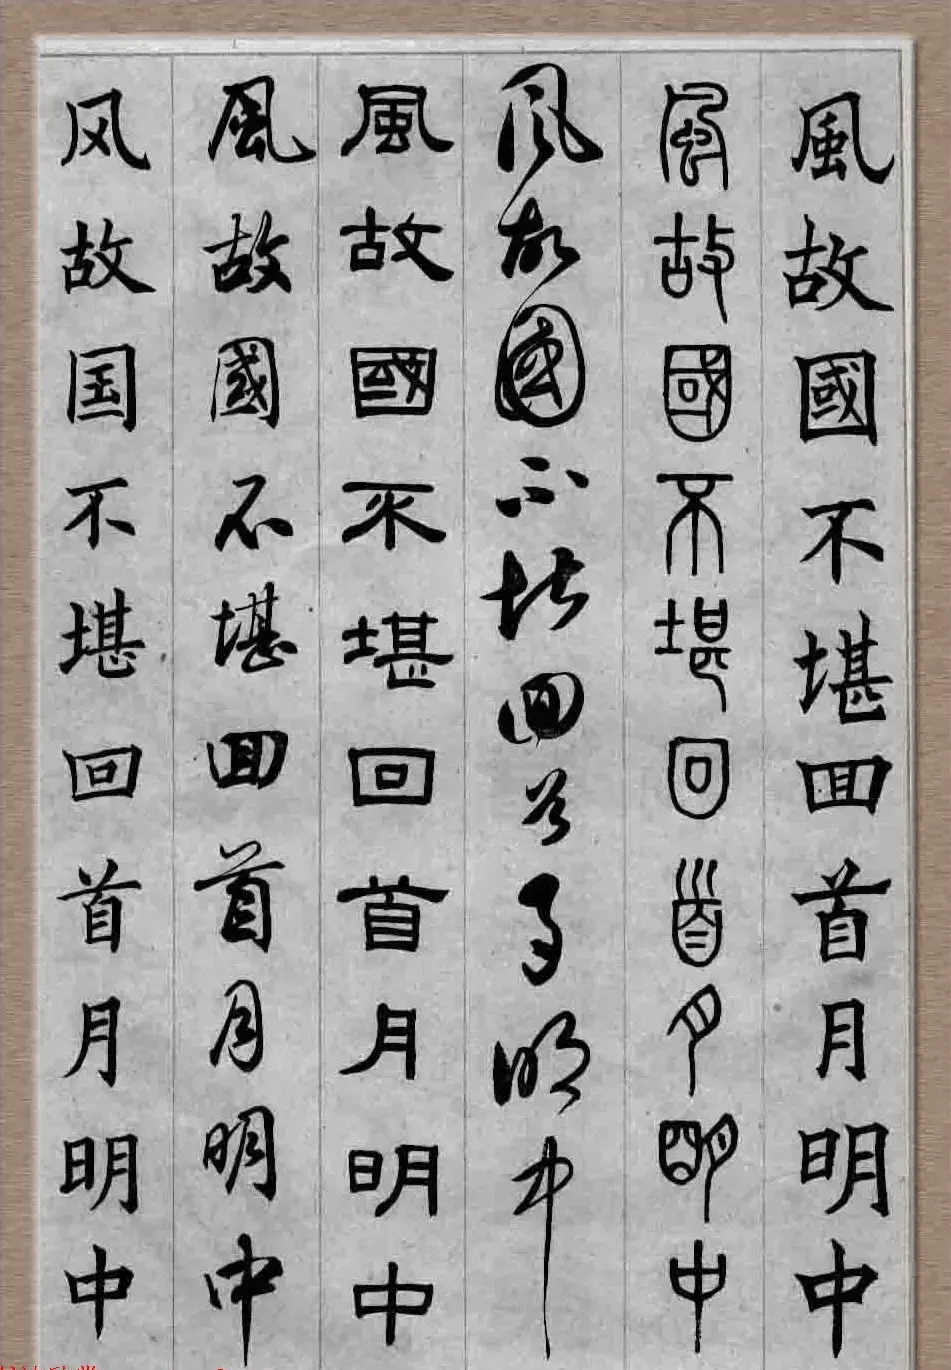 風故國不堪囬首月明中
風故國不堪回首月朙中
風故國不堪囬首月明中
風故國不堪回首月明中
風故國不堪囬首月明中
风故国不堪回首月明中